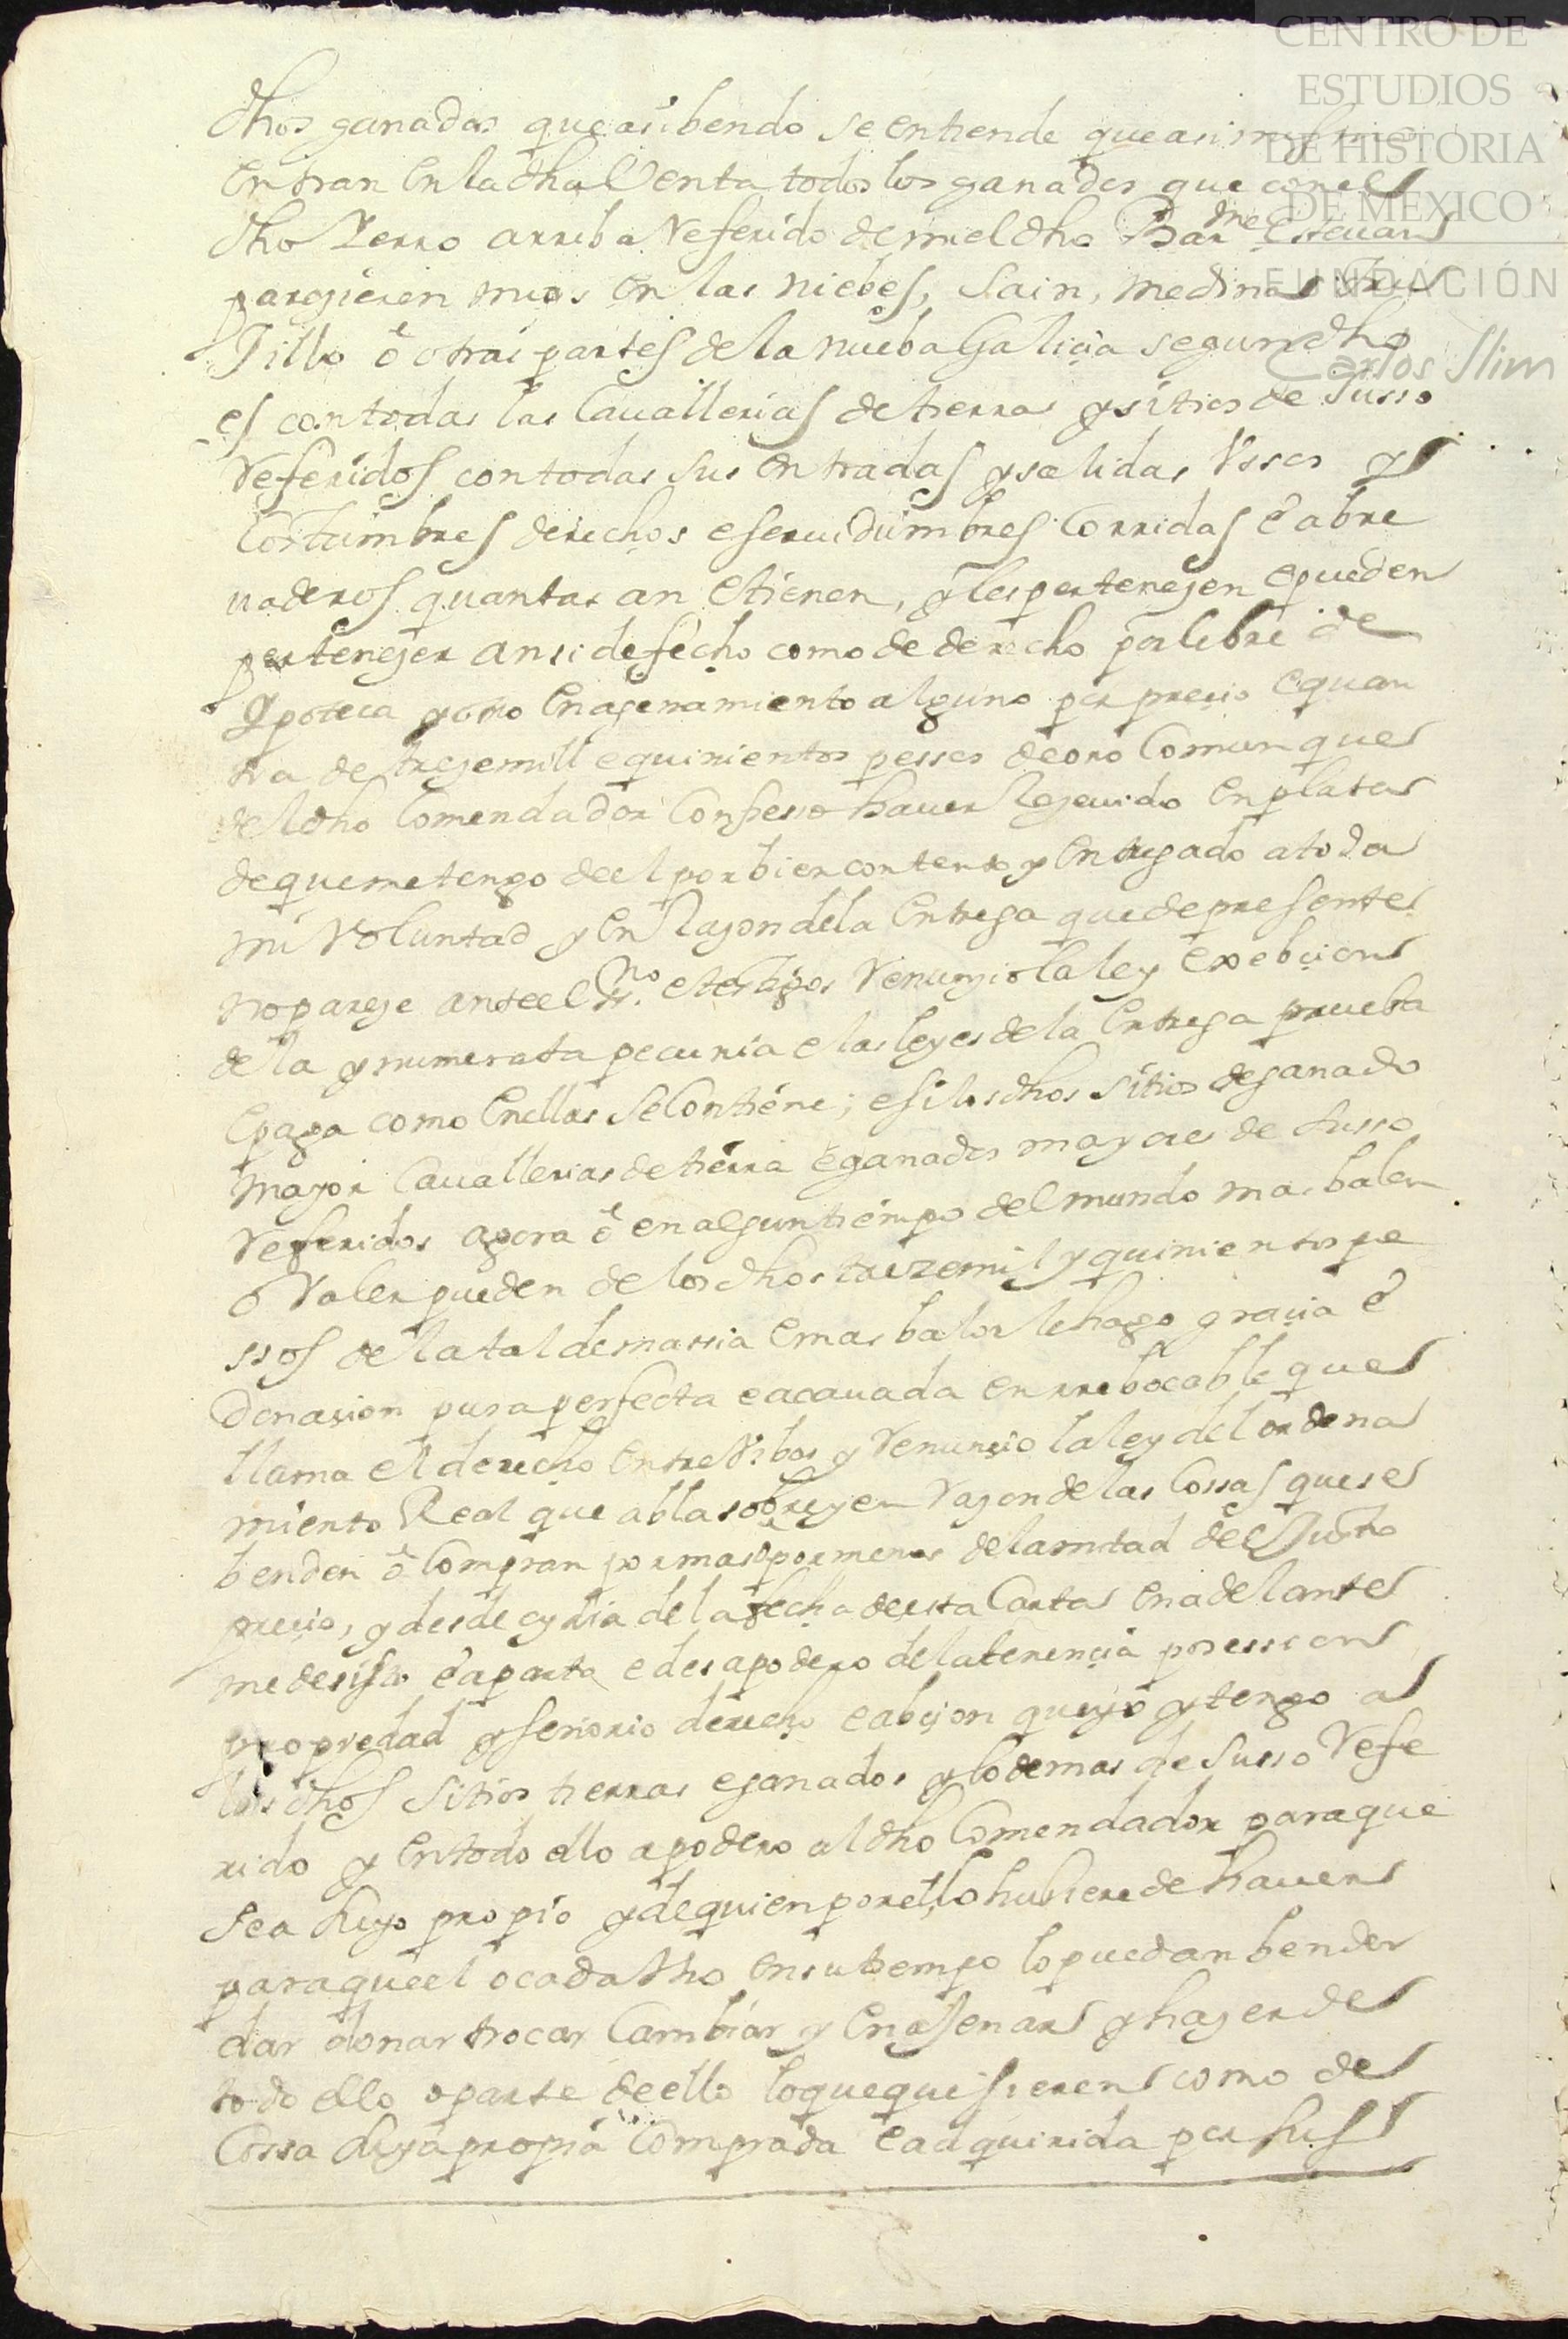 CENTRO DE
ESTUDIOS
DE HISTORIA
DE MEXICO
FUNDACIÓN
Carlos Slim
dhos ganados que asi bendo se entiende que asi mysmo
entran en la dha Venta todos los ganados que con el
dho Yerro arriba Referido de mi el dho Barme Estevan
paresieren mios en las niebes, Sain, medina
Jillo o otras partes de la nueba Galicia segun dho
es con todas las Cauallerias de tierras y sitios de Susso
Referidos con todas sus entradas y salidas Vsos y
Costumbres derechos e seruidumbres Corridas e abre
uaderos quantas an e tienen, y les pertenesen e pueden
pertenezer ansi de fecho como de derecho por libre de
ypoteca y otro Enagenamiento alguno por precio e quan
tia de treze mill e quinientos pessos de oro Comun que
del dho Comendador Confiesso hauer Reseuido en plata
de que me tengo de el por bien contento y Entregado a toda
mi Voluntad y en Razon de la Entrega que de presente
no pareze ante el ssno. e testigos Renunzio la ley exebcion
de la ynumerata pecunia e las leyes de la Entrega prueba
e paga como en ellas se Contiene; e si los dhos sitios de ganado
mayor Cauallerias de tierra e ganados mayores de susso
Referidos agora o en algun tiempo del mundo mas balen
o Valer pueden de los dhos treze mil y quinientos pe
ssos de la tal demassia e mas balor le hago gracia e
Donacion pura perfecta e acauada enrrebocable que
llama el derecho entre Vibos y Renuncio la ley del ordena
miento Real que abla sobre y en Razon de las Cossas que se
benden o Compran por mas o por menos de la mitad del Justo
precio, y desde oy dia de la fecha de esta Carta en adelante
me desisto e aparto e desapodero de la tenencia possession
propiedad y señorio derecho e abcion que yo y tengo a
los dhos sitios tierras e ganados y lo demas de Susso Refe
rido y en todo ello apodero al dho Comendador para que
sea suyo propio y de quien por ello hubiere de hauer
para que el o cada Vno en su tiempo lo puedan bender
dar donar trocar Cambiar y Enagenar y hazer de
todo ello o parte de ello lo que quisieren como de
Cossa suya propia Comprada e adquirida por sus